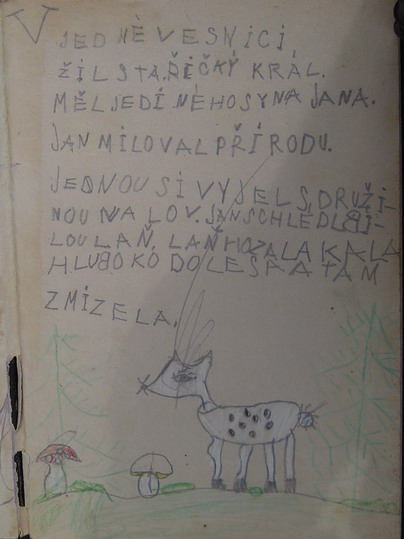 V JEDNÉ VESNICI,
ŽIL STAŘIČKÝ KRÁL.
MĚL JEDINÉHO SYNA JANA.
JAN MILOVAL PŘÍRODU.
JEDNOU SI VYJEL S DRUŽI-
NOU NA LOV. JAN SCHLÉDL BÍ-
LOU LAŇ. LAŇ HO ZALÁKALA
HLUBOKO DO LESA A TAM
ZMIZELA.